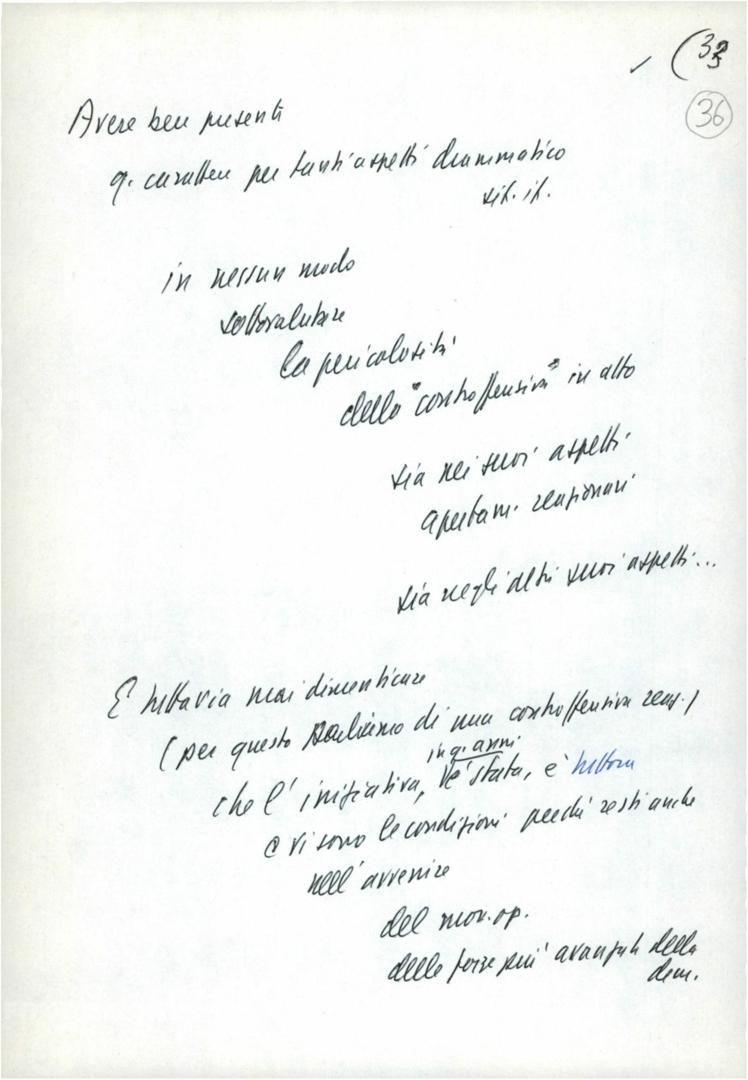 ✓ (33
36
Avere ben presenti
q. carattere per tanti aspetti drammatico
sit. it.
in nessun modo
sottovalutare
la pericolosità
della "controffensiva" in atto
sia nei suoi aspetti
apertam. reazionari
sia negli altri suoi aspetti...
E tuttavia mai dimenticare
(per questo parliamo di una controffensiva reaz.)
in q. anni
che l'iniziativa, v'è stata, è tuttora
e vi sono le condizioni perché resti anche
nell'avvenire
del mov. op.
delle forze più avanzate della
dem.